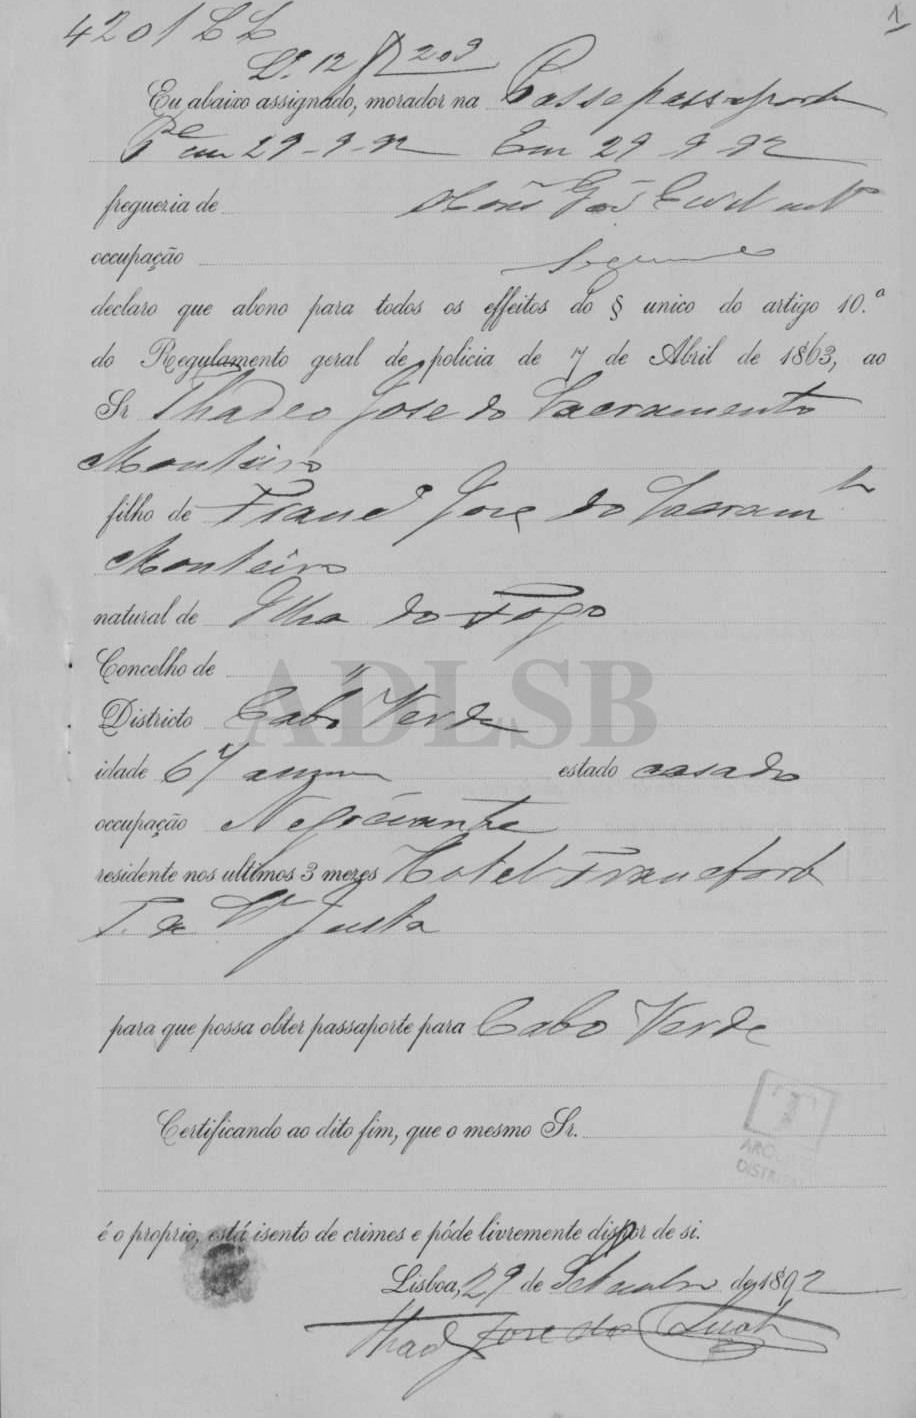 4201
1
Lº 12 209
Eu abaixo assignado, morador na Passe passaporte
Pe em 29-9-92 Em 29 9 92
freguezia de
occupação
declaro que abono para todos os effeitos do § unico do artigo 10.º
do Regulamento geral de policia de 7 de Abril de 1863, ao
Sr Thadeo Jose do Sacramento
Monteiro
filho de Franco Jose do Sacramto
Monteiro
natural de Ilha do Fogo
Concelho de "
Districto Cabo Verde
idade 67 annos estado casado
occupação Negociante
residente nos ultimos 3 mezes Hotel Francfort
T. de Sta Justa
para que possa obter passaporte para Cabo Verde
Certificando ao dito fim, que o mesmo Sr.
é o proprio, está isento de crimes e póde livremente dispor de si.
Lisboa, 29 de Setembro de 1892
Thad Jose do
ADLSB
T
DISTR